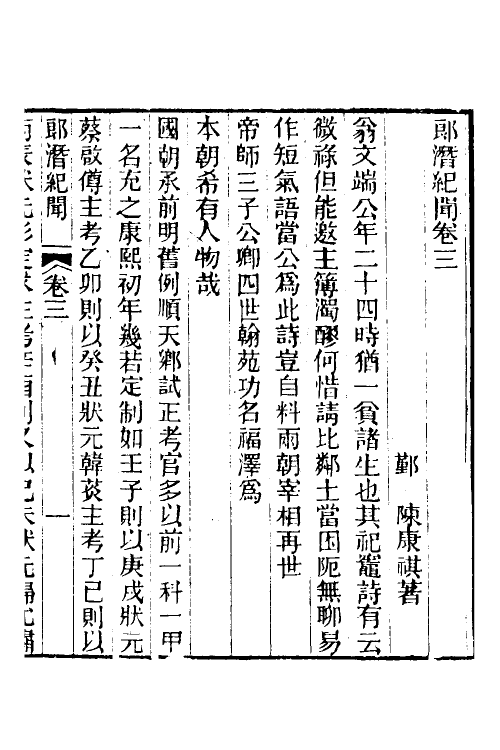 郎潛紀聞卷三
鄞　陳康祺著
翁文端公年二十四時猶一貧諸生也其祀竈詩有云
微祿但能邀主簿濁醪何惜請比鄰士當困阨無聊易
作短氣語當公爲此詩豈自料兩朝宰相再世
帝師三子公卿四世翰苑功名福澤爲
本朝希有人物哉
國朝承前明舊例順天鄉試正考官多以前一科一甲
一名充之康熙初年幾若定制如壬子則以庚戌狀元
蔡啟僔主考乙卯則以癸丑狀元韓菼主考丁巳則以
郎潛紀聞　卷三　一
丙辰狀元彭定求主考辛酉則又以己未狀元歸允肅